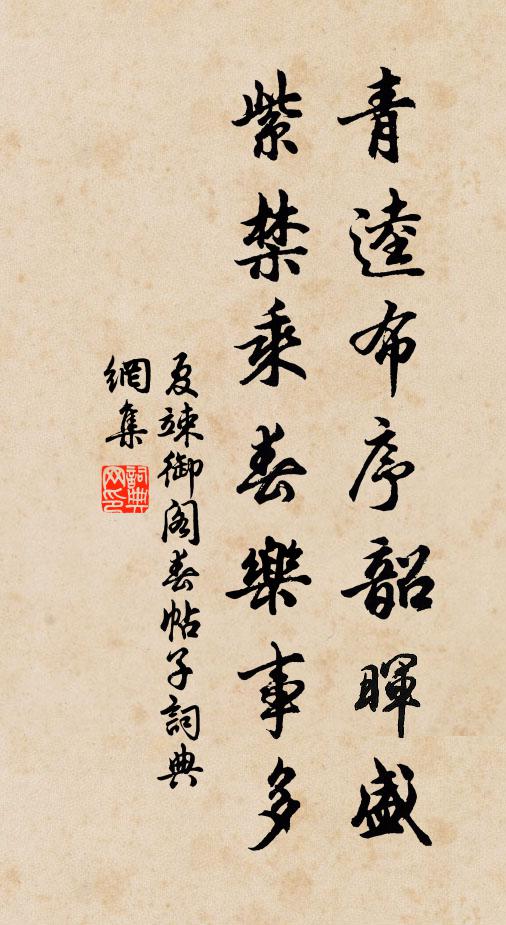 青逵布序韶暉盛
紫禁乘春樂事多
夏竦御閣春帖子詞典
網集
詞典網印